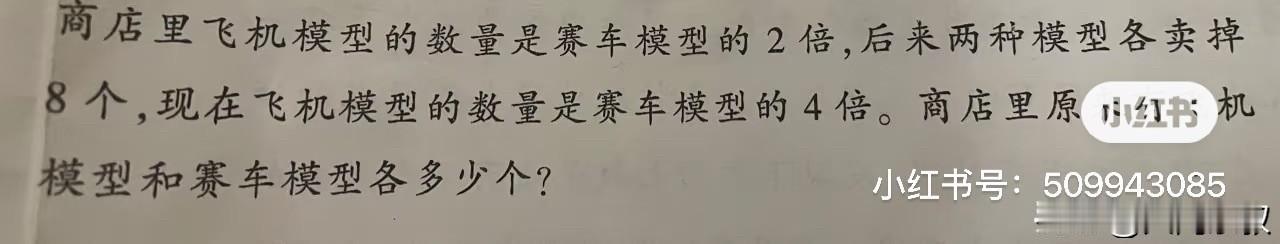 商店里飞机模型的数量是赛车模型的2倍,后来两种模型各卖掉
8个,现在飞机模型的数量是赛车模型的4倍。商店里原 机
小红书
模型和赛车模型各多少个?
小红书号：509943085